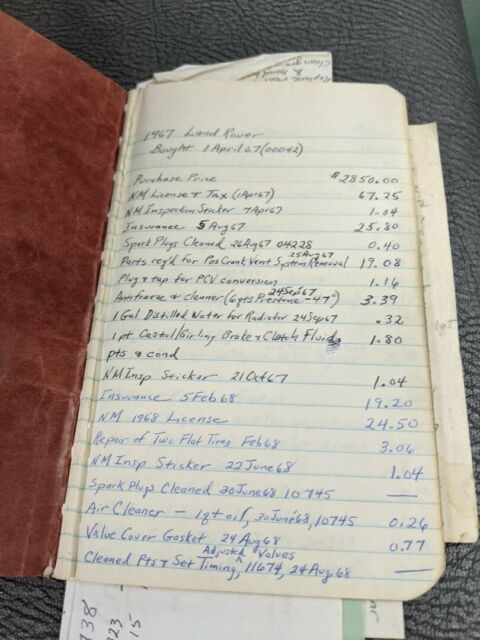 1967 Land Rover
Bought 1 April 67 (00042)
Purchase Price $2850.00
NM License & Tax (1Apr67) 67.25
NM Inspection Sticker 7Apr67 1.04
Insurance 5Aug67 25.80
Spark Plugs Cleaned 26Aug67 04228 0.40
25Aug67
Parts req'd for Pos Crank Vent System Removal 19.08
Plug & tap for PCV conversion 1.16
24Sep67
Antifreeze & cleaner (6qts Prestone -47°) 3.39
1 Gal Distilled Water for Radiator 24Sep67 .32
1 pt Castrol/Girling Brake & Clutch Fluid 1.80
pts & cond
NM Insp Sticker 21Oct67 1.04
Insurance 5Feb68 19.20
N.M. 1968 License 24.50
Repair of Two Flat Tires Feb68 3.06
NM Insp Sticker 22June68 1.04
Spark Plugs Cleaned 30June68 10745 —
Air Cleaner – 1qt oil, 30June68, 10745 0.26
Valve Cover Gasket 24Aug68 0.77
Adjusted Valves
Cleaned Pts & Set Timing, 11674, 24Aug68 —
738
923
15